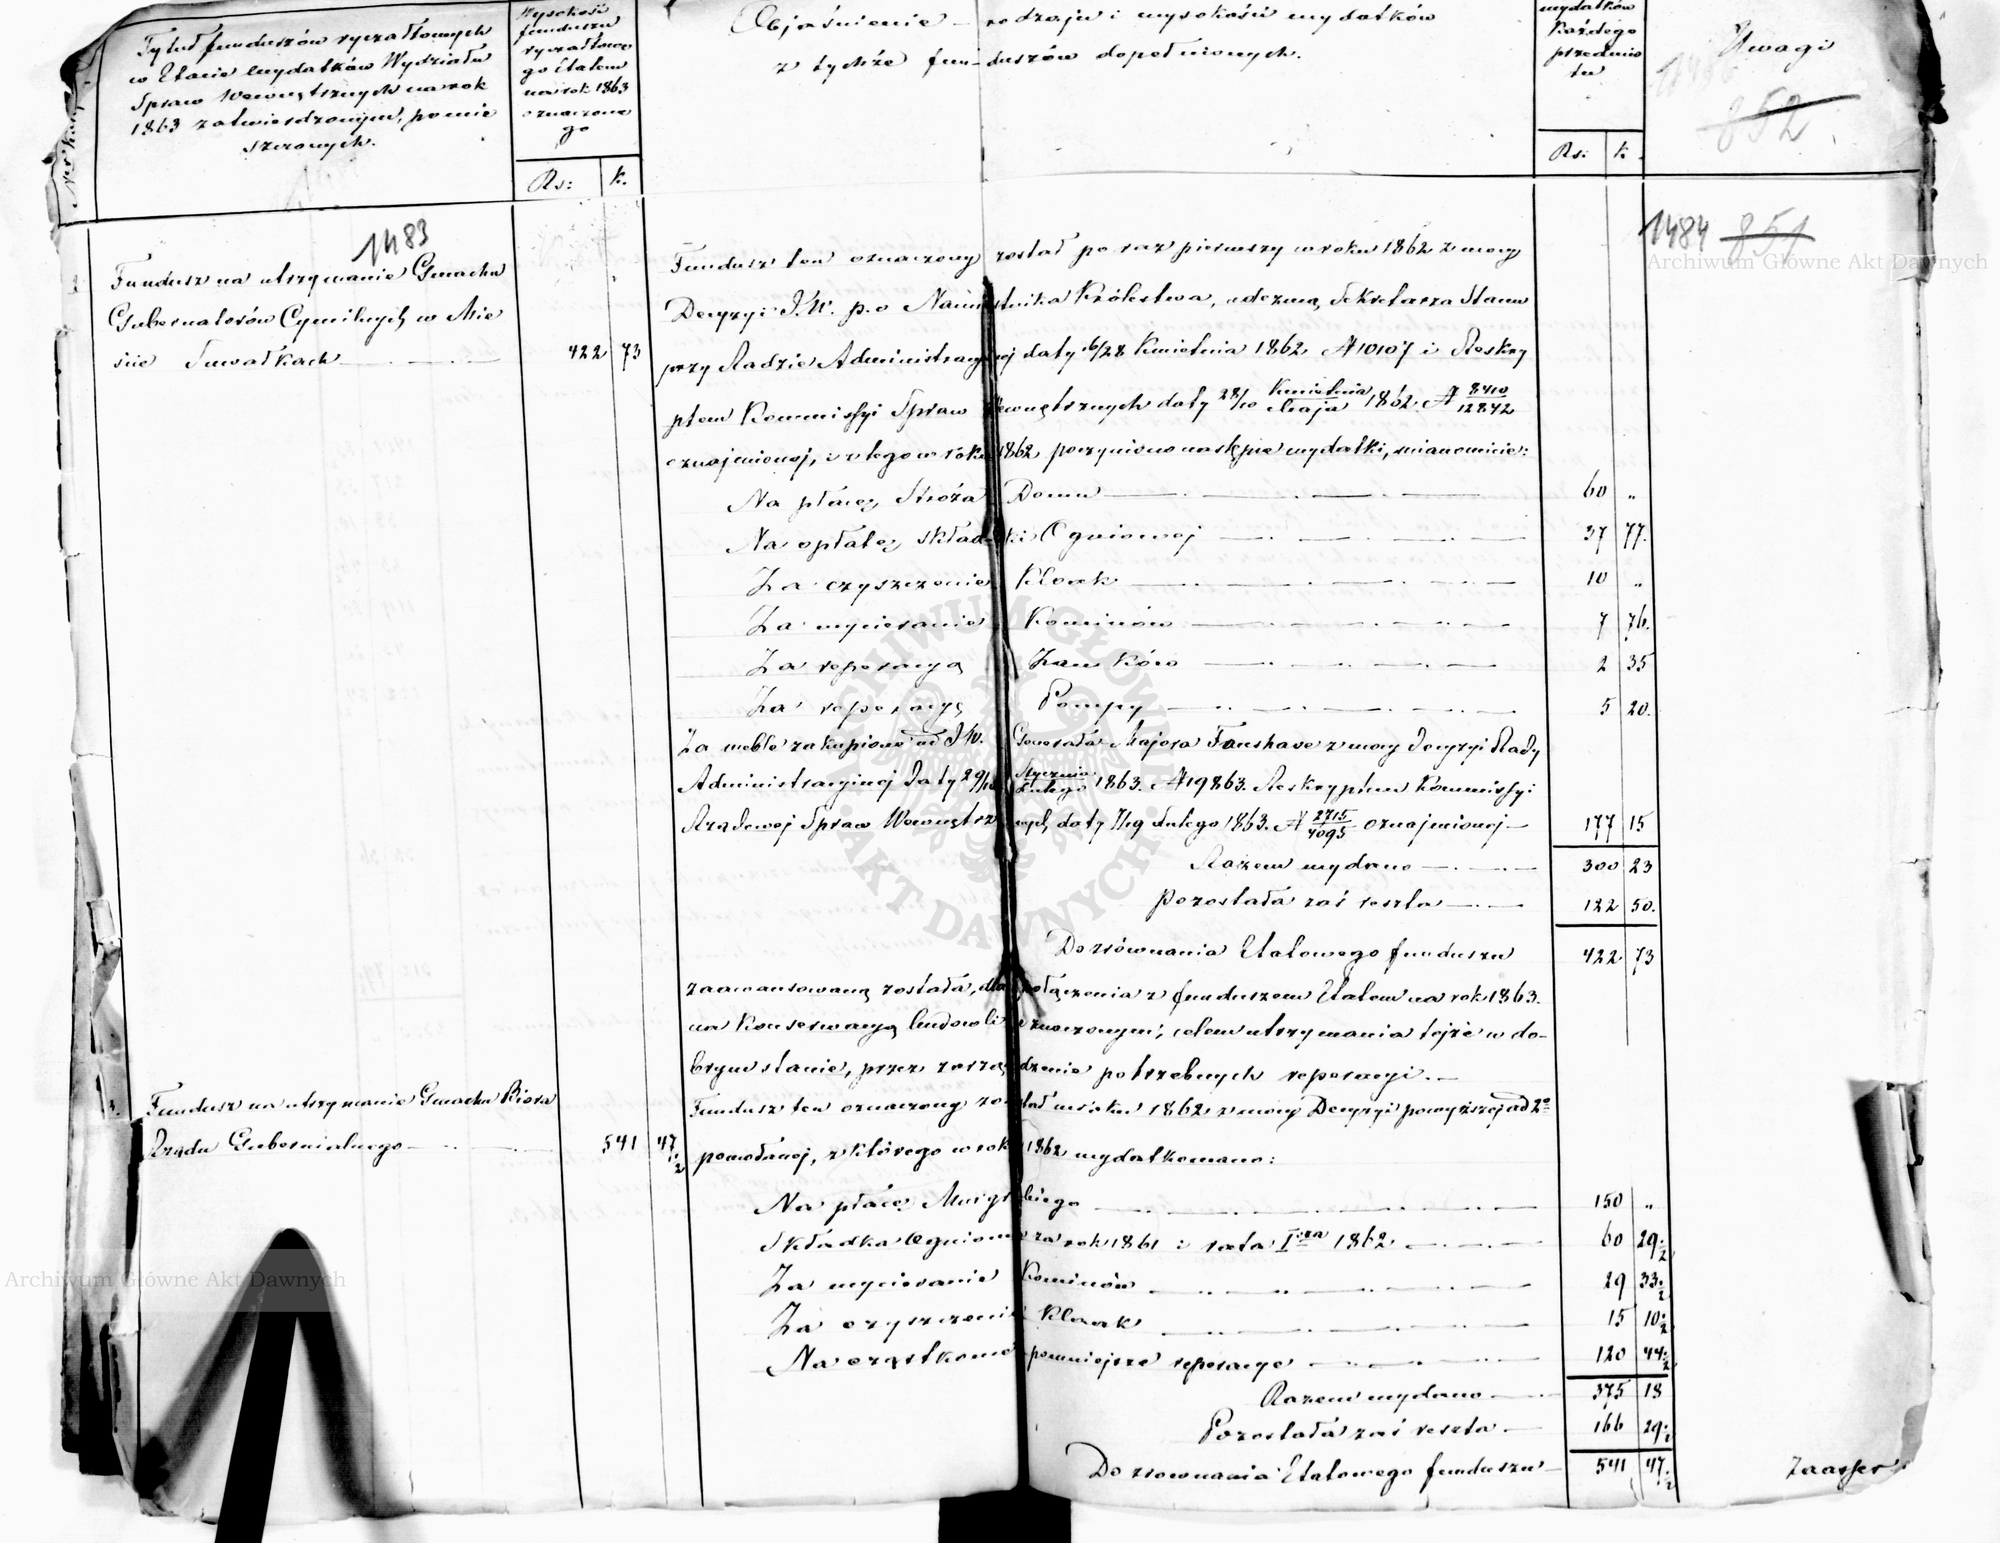 Ner Kol.
Tytuł funduszów ryczałtowych
w Etacie wydatków Wydziału
Spraw Wewnętrznych na rok
1863 zatwierdzonym, pomie
szczonych.
Wysokość
funduszu
ryczałtowe
go Etatem
na rok 1863
oznaczone
go
Rs: k.
Objaśnienie rodzaju i wysokości wydatków
z tychże funduszów dopełnionych.
wydatków
Każdego
przedmio
tu
Rs: k.
Uwagi
852
1483
1484 851
Archiwum Główne Akt Dawnych
Fundusz na utrzymanie Gmachu
Gubernatorów Cywilnych w Mie
ście Suwałkach 422 73
Fundusz ten oznaczony został po raz pierwszy w roku 1862 z mocy
Decyzyi J.W. p.o Namiestnika Królestwa, odezwą Sekretarza Stanu
przy Radzie Administracyjnej daty 16/28 Kwietnia 1862 N 10107 i Reskry
ptem Kommissyi Spraw Wewnętrznych daty 28/10 Kwietnia/Maja 1862 N 8410/12842
oznajmionej, i z tego w roku 1862 poczyniono następne wydatki, mianowicie:
Na płacę Stróża Domu 60 „
Na opłatę składki Ogniowej 37 77.
Za czyszczenie Kloak 10 „
Za wycieranie Kominów 7 76.
Za reperacyą Zamków 2 35
Za reperacyą Pompy 5 20.
Za meble zakupione od JW. Generała Majora Fanshave z mocy Decyzyi Rady
Administracyjnej Daty 29/10 Stycznia/Lutego 1863. N 19863. Reskryptem Kommissyi
Rządowej Spraw Wewnętrznych daty 7/19 Lutego 1863. N 2715/4095 oznajmionej 177 15
Razem wydano 300 23
Pozostała zaś reszta 122 50.
Do zrównania Etatowego funduszu 422 73
zaawansowaną została, dla połączenia z funduszem Etatem na rok 1863.
na Konserwacyą budowli oznaczonym; celem utrzymania tejże w do-
brym stanie, przez zarządzenie potrzebnych reperacyi.
Fundusz na utrzymanie Gmachu Bióra
Rządu Gubernialnego 541 47 1/2
Fundusz ten oznaczony został w roku 1862 z mocy Decyzyi powyższej ad 2o
powołanej, z którego w roku 1862 wydatkowano:
Na płacę 150 „
Składka Ogniowa za rok 1861 i rata Isza 1862 60 29 1/2
Za wycieranie Kominów 29 33 1/2
Za czyszczenie Kloak 15 10 1/2
Na cząstkowe pomniejsze reperacye 120 44 1/2
Razem wydano 375 18
Pozostała zaś reszta 166 29 1/2
Do zrównania Etatowego funduszu 541 47 1/2
ARCHIWUM GŁÓWNE
AKT DAWNYCH
Archiwum Główne Akt Dawnych